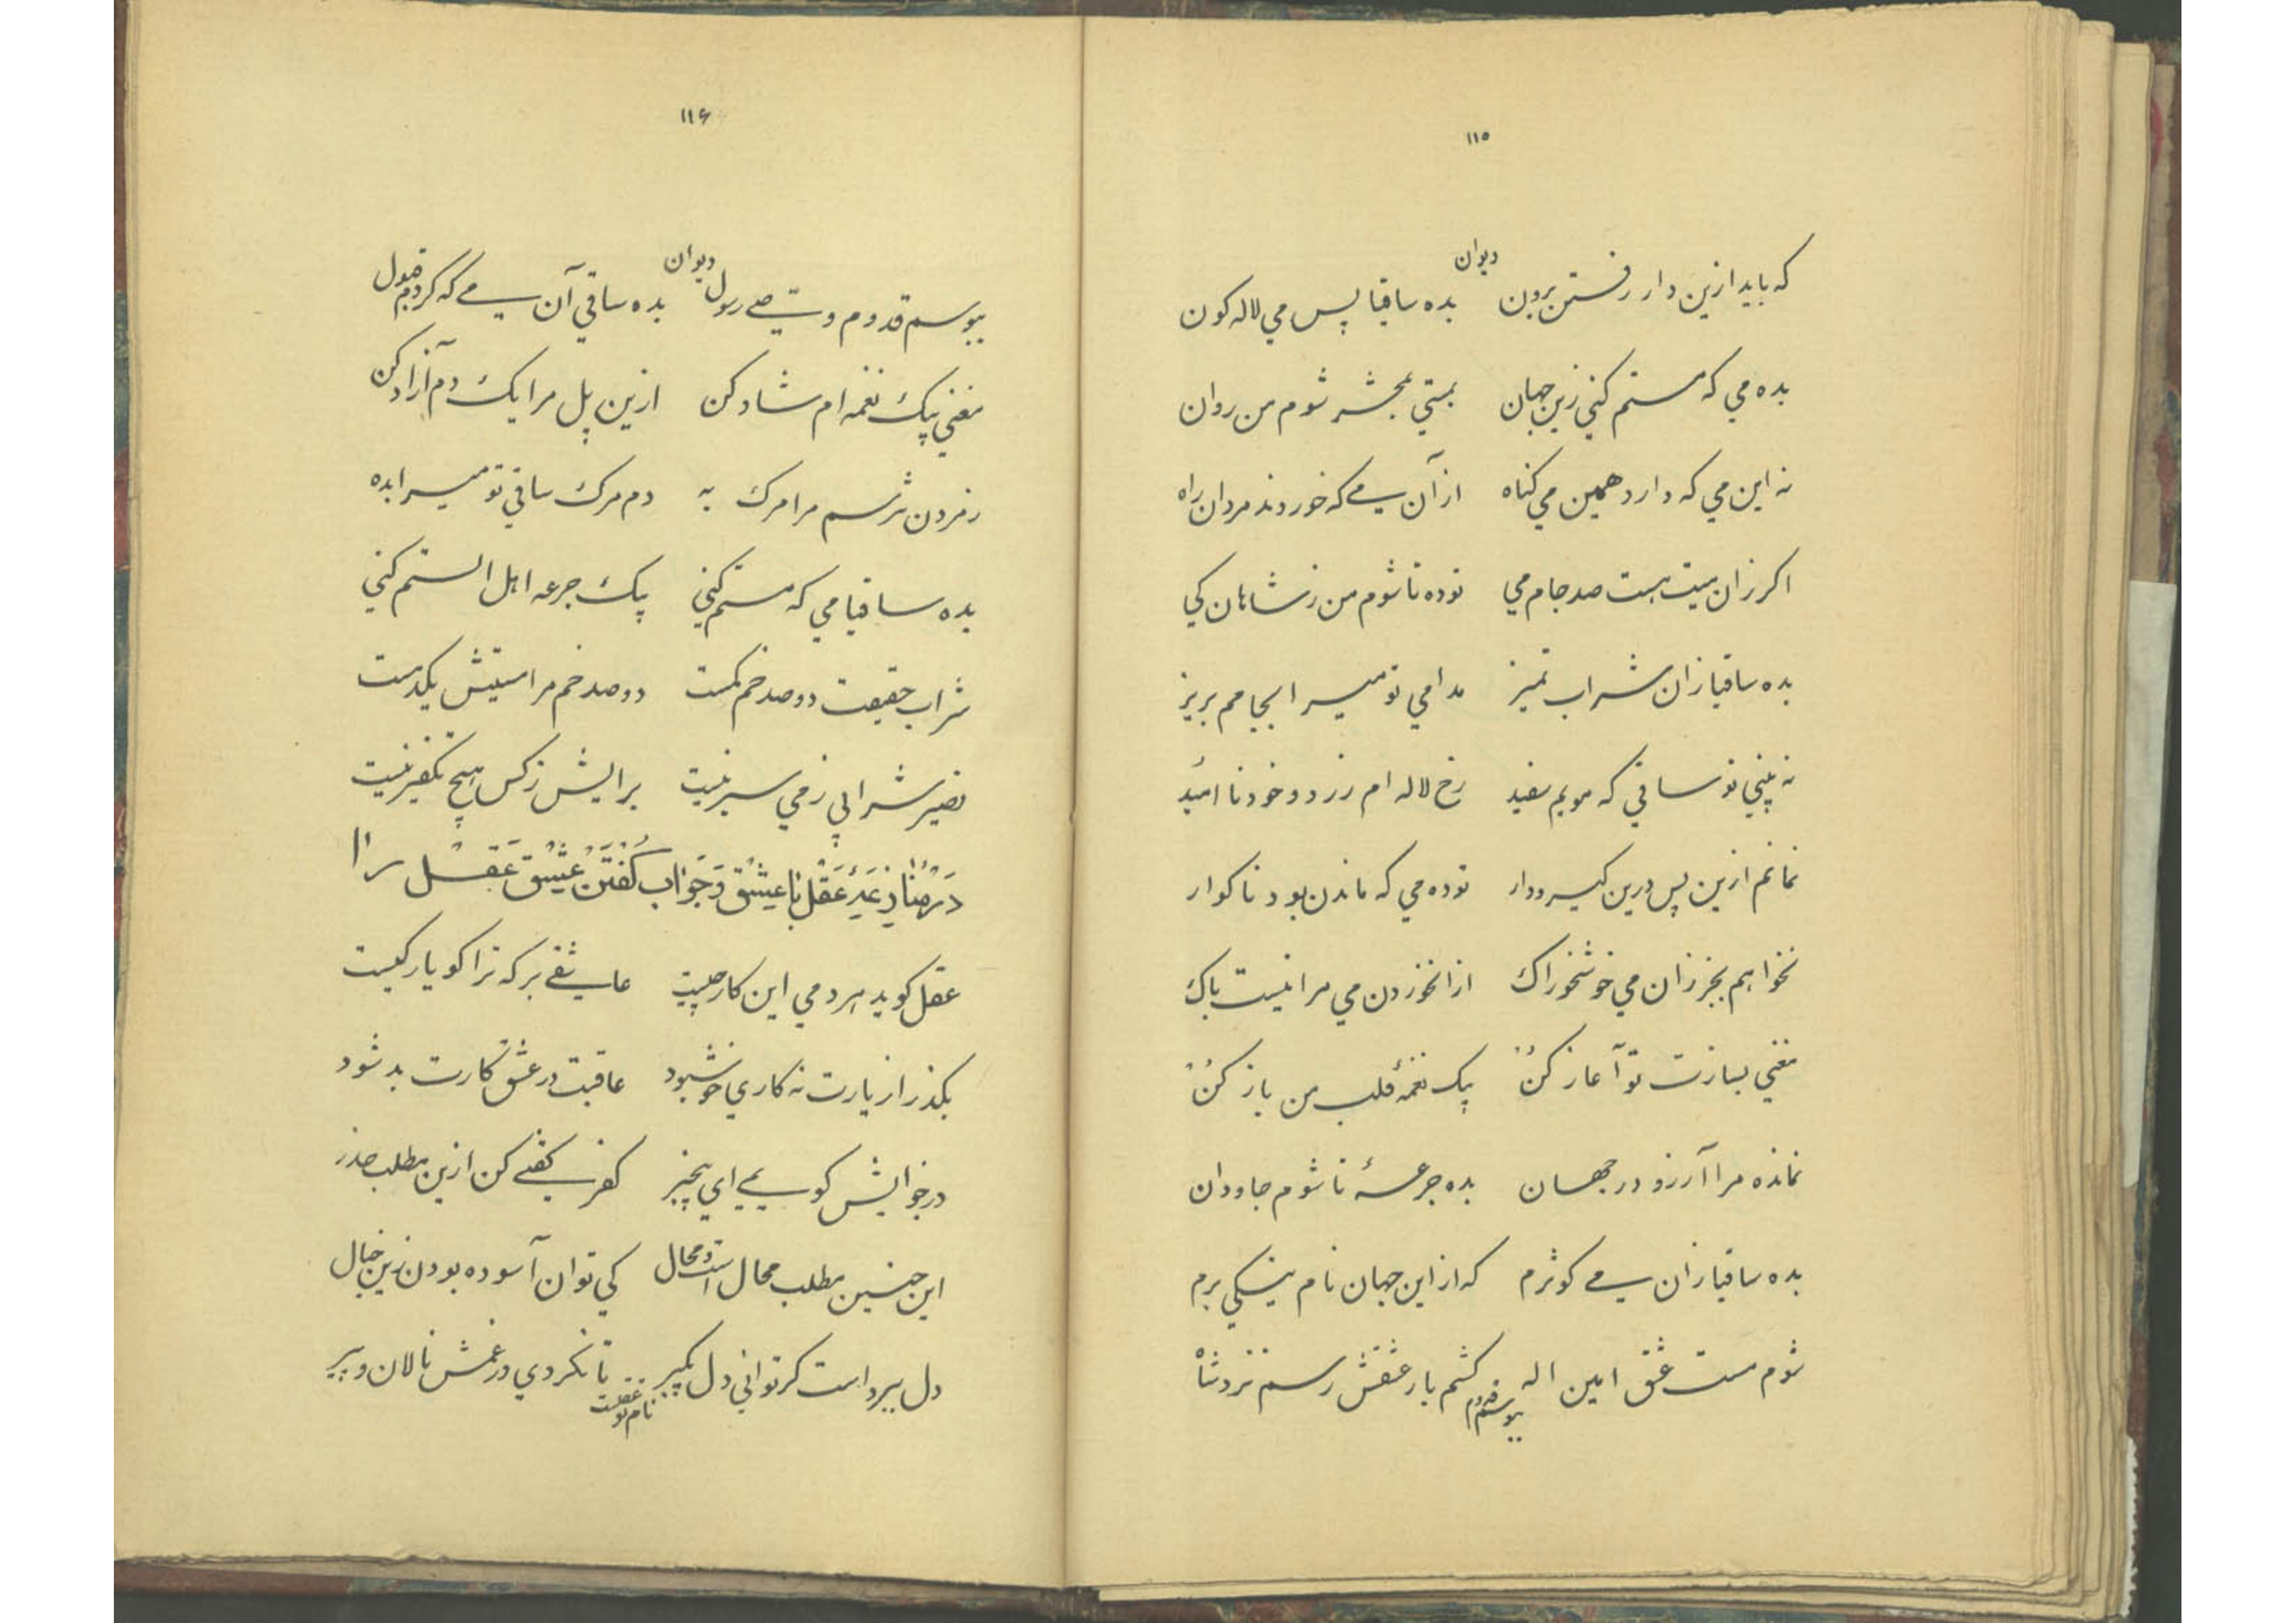 ۱۱۵
دیوان
که باید ازین دار رفستن برون بده ساقیا پس می لاله کون
بده می که مستم کنی زین جهان بمستی بمحشر شوم من روان
نه این می که دارد همین می کناه از آن می که خوردند مردان راه
اکر زان میت هست صد جام می توده تا شوم من ز شاهان کی
بده ساقیا زان شراب تمیز مدامی تو میرا بجامم بریز
نه بینی تو ساقی که مویم سفید رخ لاله ام زرد و خود نا امید
نمانم ازین پس درین کیرودار توده می که ماندن بود ناکوار
نخواهم بجز زان می خوشخوراک ازانخوردن می مرا نیست باک
مغنی بسازت تو آغاز کن بیک نغمۀ قلب من باز کن
نمانده مرا آرزو در جهان بده جرعۀ تا شوم جاودان
بده ساقیا زان می کوثرم که از این جهان نام نیکی برم
شوم مست عشق امین اله کشم بار عشقش رسم نزد شاه
ببوسم قدوم
۱۱۶
دیوان
ببوسم قدوم وصی رسول بده ساقی آن می که کردم قبول
مغنی بیک نغمه ام شاد کن ازین پل مرا یک دم آزاد کن
زمردن نترسم مرا مرک به دم مرک ساقی تو میرا بده
بده ساقیا می که مستم کنی بیک جرعه اهل الستم کنی
شراب حقیقت دو صد خم کمست دو صد خم مرا مستیش یکدمست
نصیر شرابی زمی سیر نیست برایش زکس هیچ تکفیر نیست
در منازعۀ عقل با عشق و جواب کفتن عشق عقل را
عقل کوید هردمی این کار چیست عاشقی بر که ترا کو یار کیست
بکذر از یارت نه کاری خوشبود عاقبت در عشق کارت بد شود
درخوایش کویی ای بیخبر کفر کفتی کن ازین مطلب حذر
این چنین مطلب محال است و محال کی توان آسوده بودن زین خیال
دل بیر داست کر توانی دل بکیر تا نکردی در غمش نالان و پیر
نام تو عقلست